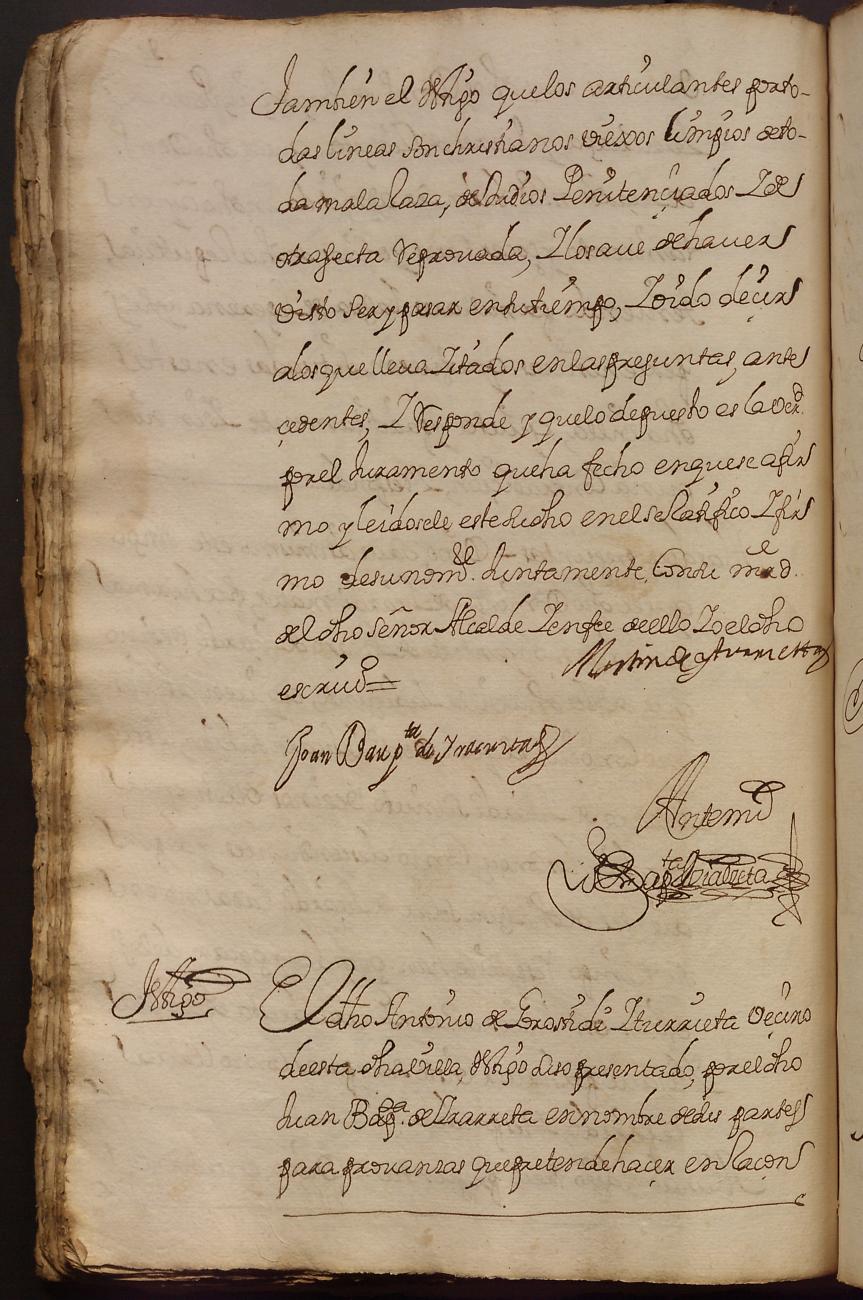 tambien el testigo que los articulantes por to-
das lineas son christianos viexos limpios de to-
da mala Raza, de Judios Penitenciados I de
otra secta Reprouada, I lo saue de hauer
visto ser y pasar en su tiempo, I oido decir
a los que lleua Zitados en las preguntas, ante
cedentes, I Responde y que lo depuesto es la verd.
por el Juramento que ha fecho en que se afir
mo y leidosele este su dho en el se Ratifico I fir
mo de su nom.e Juntamente, Con su m.d
del dho señor Alcalde I en fee de ello Io el dho
escriu.o =
Joan Baup.ta de
Ante mi
Bap.ta
testigo
El dho Antonio de Gorostidi Iturrieta Vecino
de esta dha villa, testigo dijo presentado, por el dho
Juan Bap.ta de Lizarreta en nombre de sus partes
para prouanzas que pretende hacer en Racon